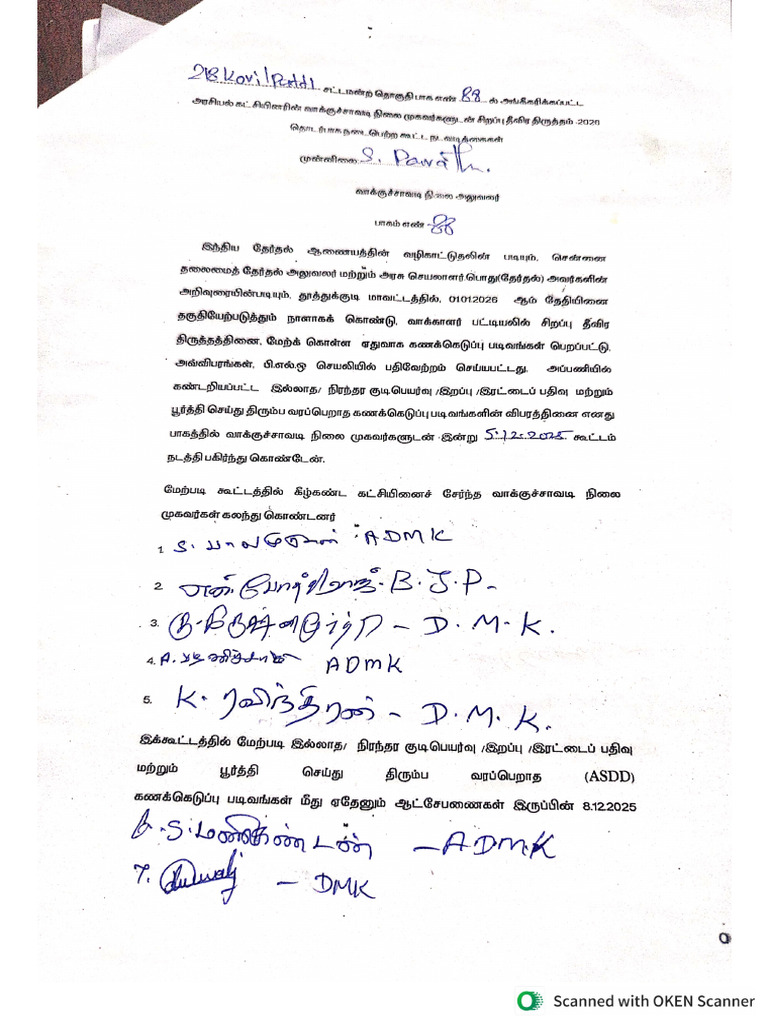 218 Kovilpatti சட்டமன்ற தொகுதி பாக எண் 88 ல் அங்கீகரிக்கப்பட்ட
அரசியல் கட்சியினரின் வாக்குச்சாவடி நிலை முகவர்களுடன் சிறப்பு தீவிர திருத்தம் -2026
தொடர்பாக நடைபெற்ற கூட்ட நடவடிக்கைகள்
முன்னிலை S.
வாக்குச்சாவடி நிலை அலுவலர்
பாகம் எண் -88
இந்திய தேர்தல் ஆணையத்தின் வழிகாட்டுதலின் படியும், சென்னை
தலைமைத் தேர்தல் அலுவலர் மற்றும் அரசு செயலாளர்.பொது(தேர்தல்) அவர்களின்
அறிவுரையின்படியும், தூத்துக்குடி மாவட்டத்தில், 01012026 ஆம் தேதியினை
தகுதியேற்படுத்தும் நாளாகக் கொண்டு, வாக்காளர் பட்டியலில் சிறப்பு தீவிர
திருத்தத்தினை, மேற்க் கொள்ள ஏதுவாக கணக்கெடுப்பு படிவங்கள் பெறப்பட்டு,
அவ்விபரங்கள், பி.எல்.ஒ செயலியில் பதிவேற்றம் செய்யபட்டது. அப்பணியில்
கண்டறியப்பட்ட இல்லாத/ நிரந்தர குடிபெயர்வு /இறப்பு /இரட்டைப் பதிவு மற்றும்
பூர்த்தி செய்து திரும்ப வரப்பெறாத கணக்கெடுப்பு படிவங்களின் விபரத்தினை எனது
பாகத்தில் வாக்குச்சாவடி நிலை முகவர்களுடன் இன்று 5.12.2025 கூட்டம்
நடத்தி பகிர்ந்து கொண்டேன்.
மேற்படி கூட்டத்தில் கீழ்கண்ட கட்சியினைச் சேர்ந்த வாக்குச்சாவடி நிலை
முகவர்கள் கலந்து கொண்டனர்
1. S. பாலமுருகன் : ADMK
2. என். - B.J.P-
3. - D.M.K.
4. A. ADMK
5. K. ரவிந்திரன் - D.M.K.
இக்கூட்டத்தில் மேற்படி இல்லாத/ நிரந்தர குடிபெயர்வு /இறப்பு /இரட்டைப் பதிவு
மற்றும் பூர்த்தி செய்து திரும்ப வரப்பெறாத (ASDD)
கணக்கெடுப்பு படிவங்கள் மீது ஏதேனும் ஆட்சேபணைகள் இருப்பின் 8.12.2025
S. மணிகண்டன் - ADMK
7. - DMK
Scanned with OKEN Scanner